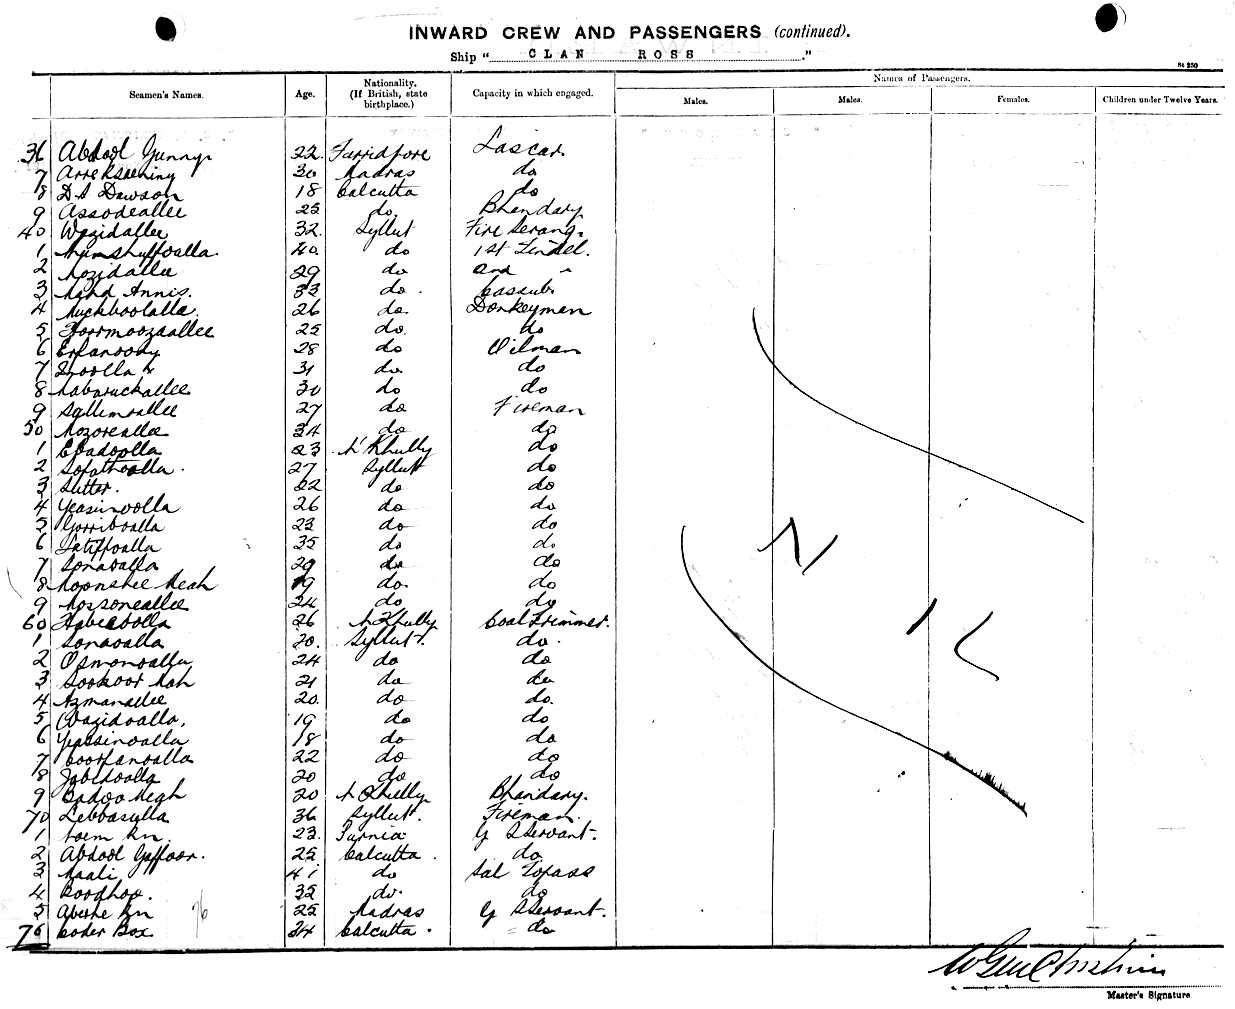 INWARD CREW AND PASSENGERS (continued).
Ship "CLAN ROSS."
St 250
Seamen's Names. Age. Nationality. (If British, state birthplace.) Capacity in which engaged. Names of Passengers.
Males. Males. Females. Children under Twelve Years.
36 Abdool Gunny 22 Furridpore Lascar
7 30 Madras do
8 D S Dawson 18 Calcutta do
9 Assodeallee 25 do Bhandary
40 Wazidallee 32 Syllut Fire Serang.
1 Mumshuffoalla 40 do 1st Tindel.
2 Mozidallee 29 do 2nd "
3 Mahd Annis. 33 do Cassub
4 Muckboolalla 26 do Donkeyman
5 25 do do
6 28 do Oilman
7 31 do do
8 Mabaruckallee 30 do do
9 Sallimallee 27 do Fireman
50 Mozoreallee 34 do do
1 Ebadoolla 23 N'Khully do
2 27 Syllut do
3 Sutter. 22 do do
4 Yeasinoolla 26 do do
5 Gorriboalla 23 do do
6 Latiffoalla 35 do do
7 Sonaoalla 29 do do
8 Moonshee Meah 19 do do
9 24 do do
60 Habiboolla 26 N'Khully Coal Trimmer.
1 Sonaoalla 20 Syllut. do
2 Osmonoalla 24 do do
3 Sookoor Mah 21 do do
4 Azmanallee 20 do do.
5 Wazidoalla, 19 do do
6 Yeassinoalla 18 do do
7 22 do do
8 Jabedoolla 20 do do
9 Badoo Meah 20 N'Khully Bhandary.
70 36 Syllut. Fireman.
1 23 Purnia G S Servant.
2 Abdool Gaffoor. 25 Calcutta do
3 41 do Sal Topass
4 Boodhoo. 35 do do
5 25 Madras G S Servant.
76 Coder Box 34 Calcutta do
76
NIL
Master's Signature